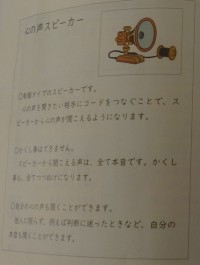 心の声スピーカー
○有線タイプのスピーカーです。
心の声を聞きたい相手にコードをつなぐことで、ス
ピーカーから心の声が聞こえるようになります。
○かくし事はできません。
スピーカーから聞こえる声は、全て本音です。かくし
事も、全てつつぬけになります。
○自分の心の声も聞くことができます。
他人に限らず、例えば判断に迷ったときなど、自分の
本音も聞くことができます。